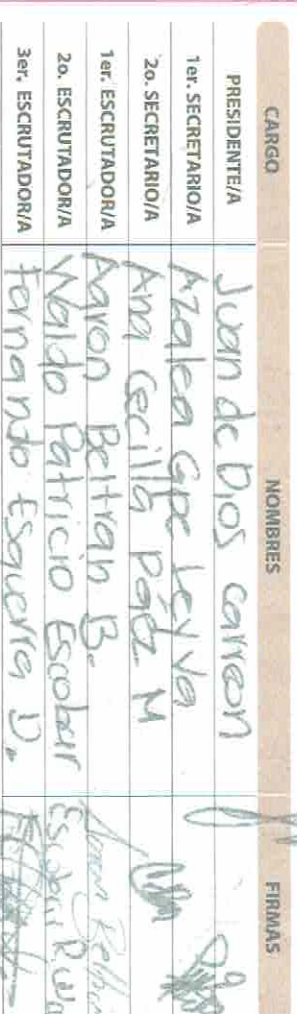 CARGO NOMBRES FIRMAS
PRESIDENTE/A Juan de Dios carreon
1er. SECRETARIO/A Azalea Gpe Leyva
2o. SECRETARIO/A Ana Cecilia Páez M
1er. ESCRUTADOR/A Aaron Beltran B.
2o. ESCRUTADOR/A Waldo Patricio Escobar
3er. ESCRUTADOR/A Fernando Esquerra D.